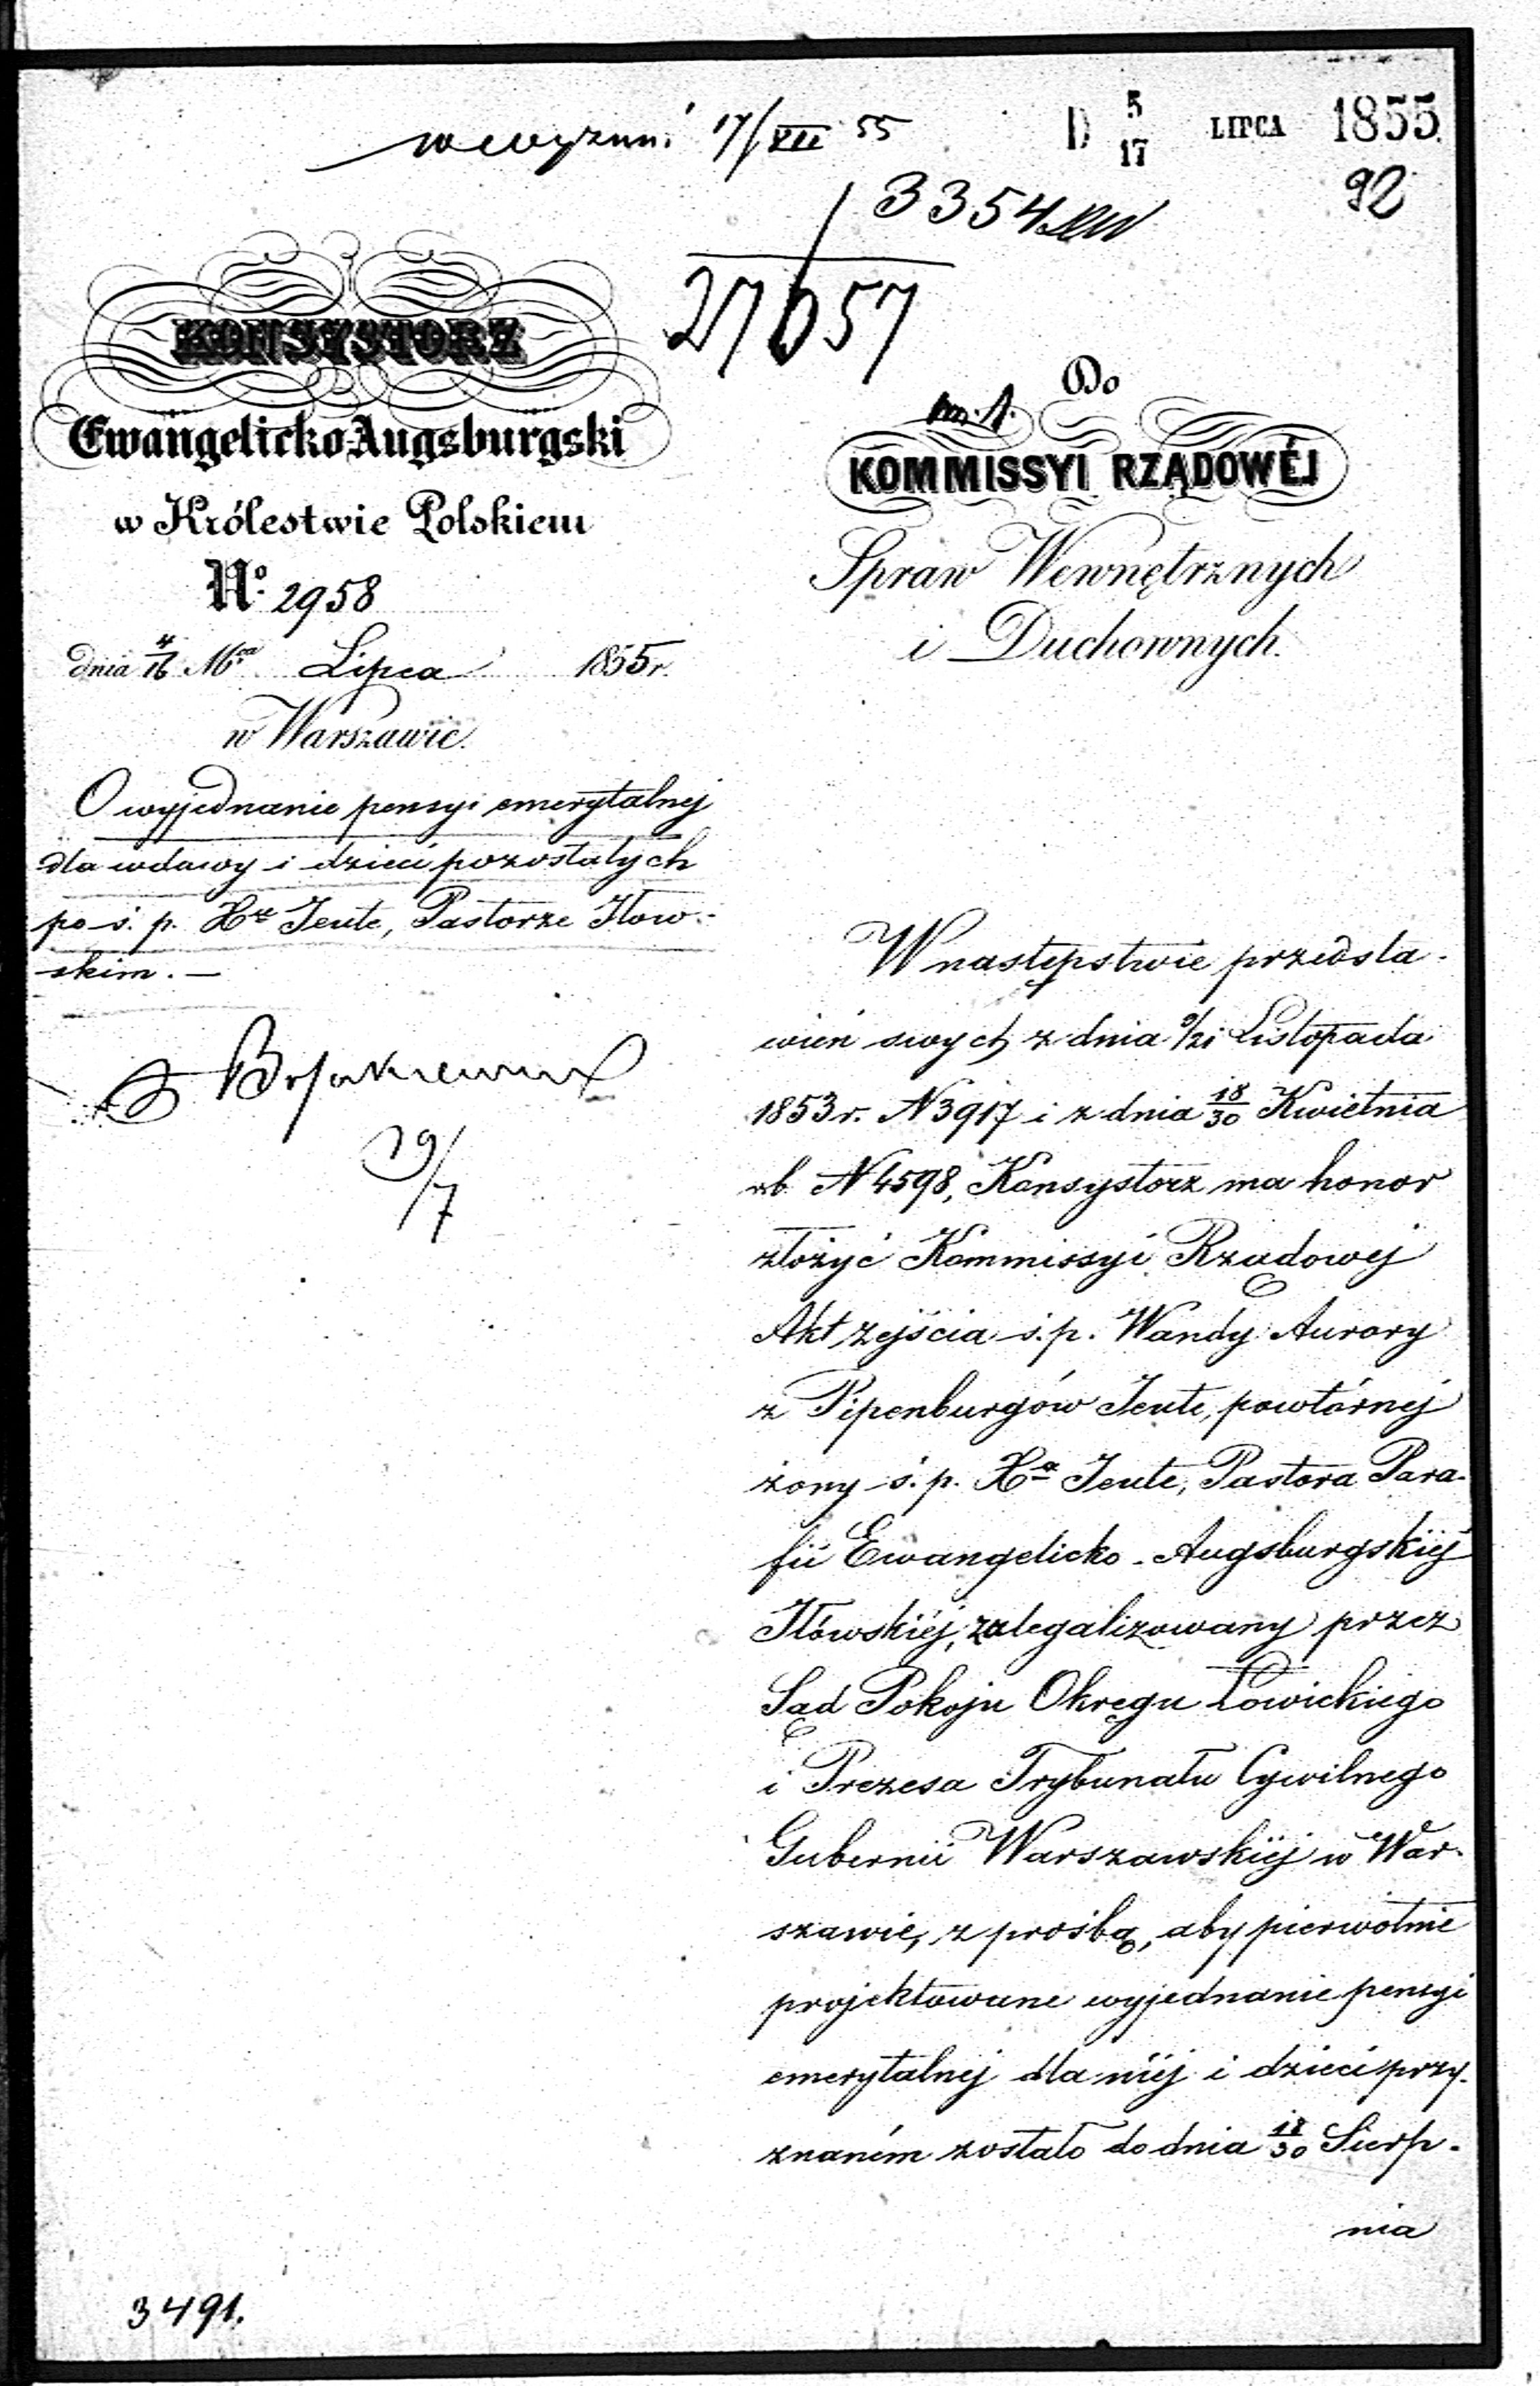 17/XII 55
D 5/17 LIPCA 1855
92
3354
27657
KONSYSTORZ
Ewangelicko-Augsburgski
w Królestwie Polskiem
No. 2958
dnia 4/16 Mca Lipca 1855 r.
w Warszawie.
O wyjednanie pensyi emerytalnej
dla wdowy i dzieci pozostałych
po ś. p. Xe Jeute, Pastorze Iłow-
skim. —
19/7
3491.
Do
KOMMISSYI RZĄDOWÉJ
Spraw Wewnętrznych
i Duchownych.
W następstwie przedsta-
wień swych z dnia 9/21 Listopada
1853 r. N 3917 i z dnia 18/30 Kwietnia
rb. N 4598, Konsystorz ma honor
złożyć Kommissyi Rządowej
Akt zejścia ś. p. Wandy Aurory
z Pipenburgów Jeute, powtórnej
żony ś. p. Xa Jeute, Pastora Para-
fii Ewangelicko-Augsburgskiéj
Iłowskiéj, zalegalizowany przez
Sąd Pokoju Okręgu Łowickiego
i Prezesa Trybunału Cywilnego
Gubernii Warszawskiéj w War-
szawie, z prośbą, aby pierwotnie
projektowane wyjednanie pensyi
emerytalnej dla niéj i dzieci przy-
znaném zostało do dnia 18/30 Sierp-
nia